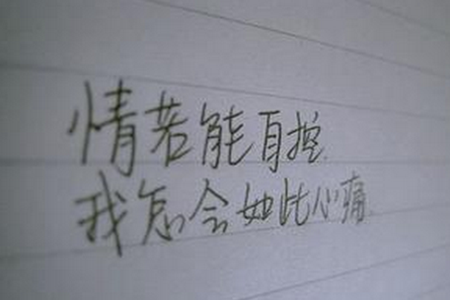 情若能自控
我怎会如此心痛